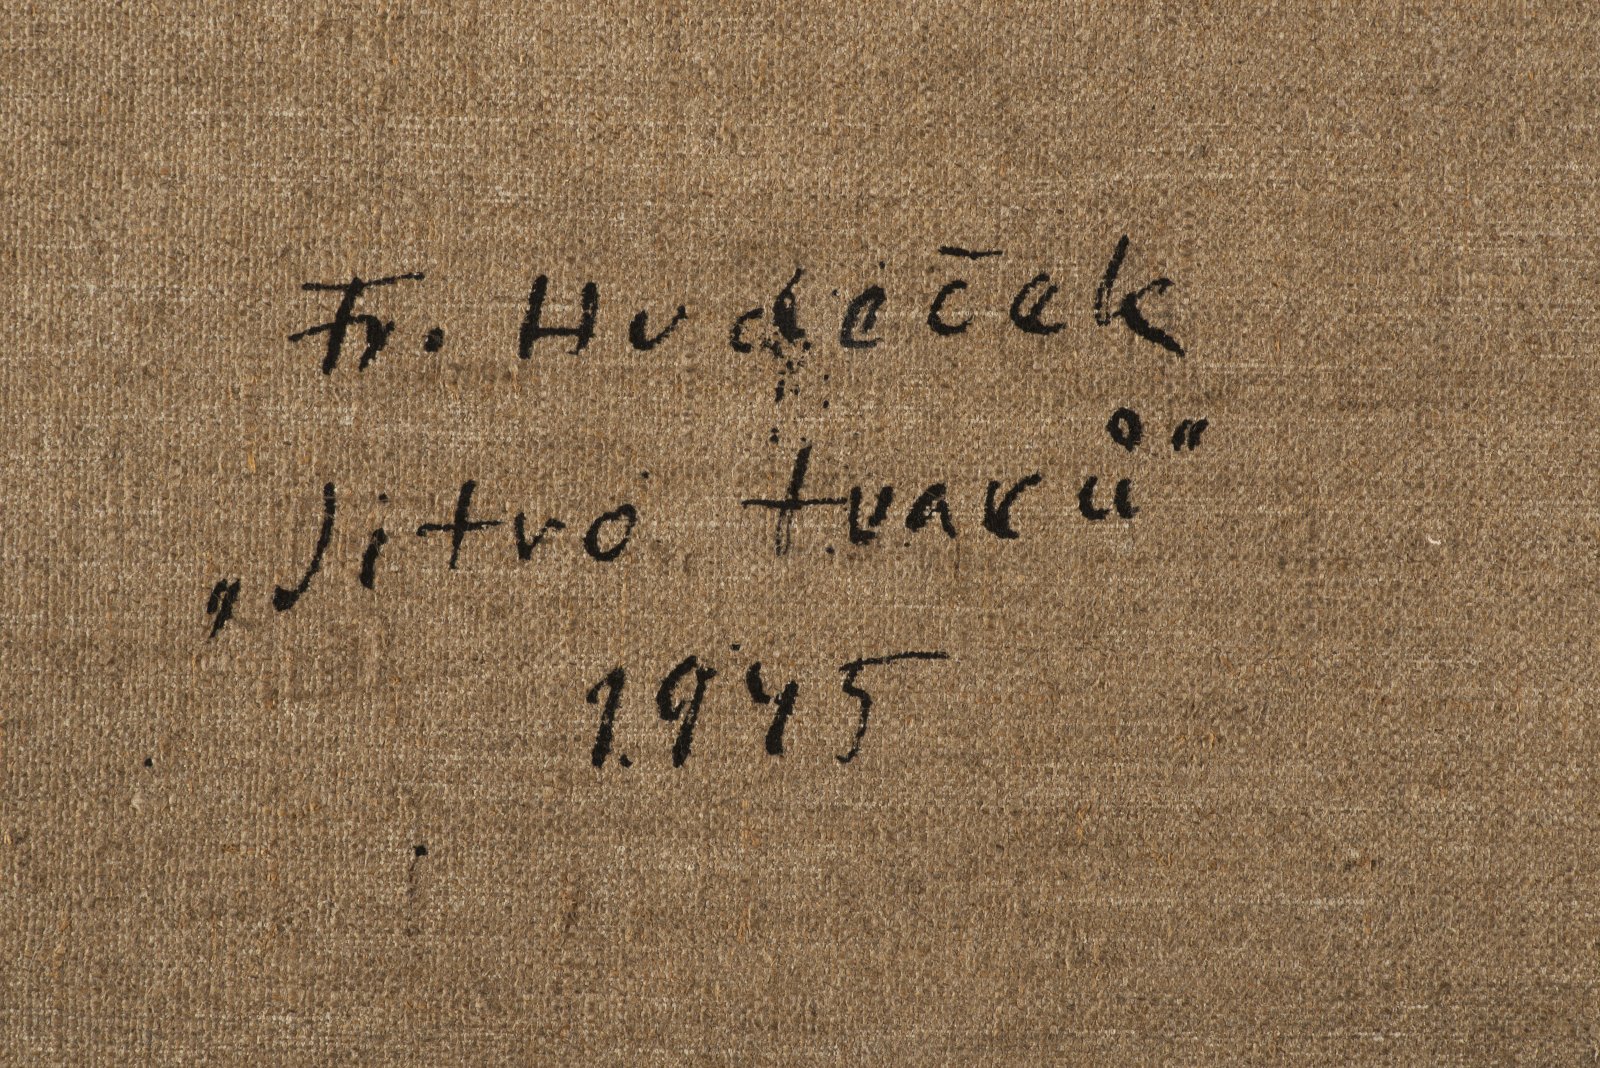 Fr. Hudeček
„Jitro tvarů“
1945